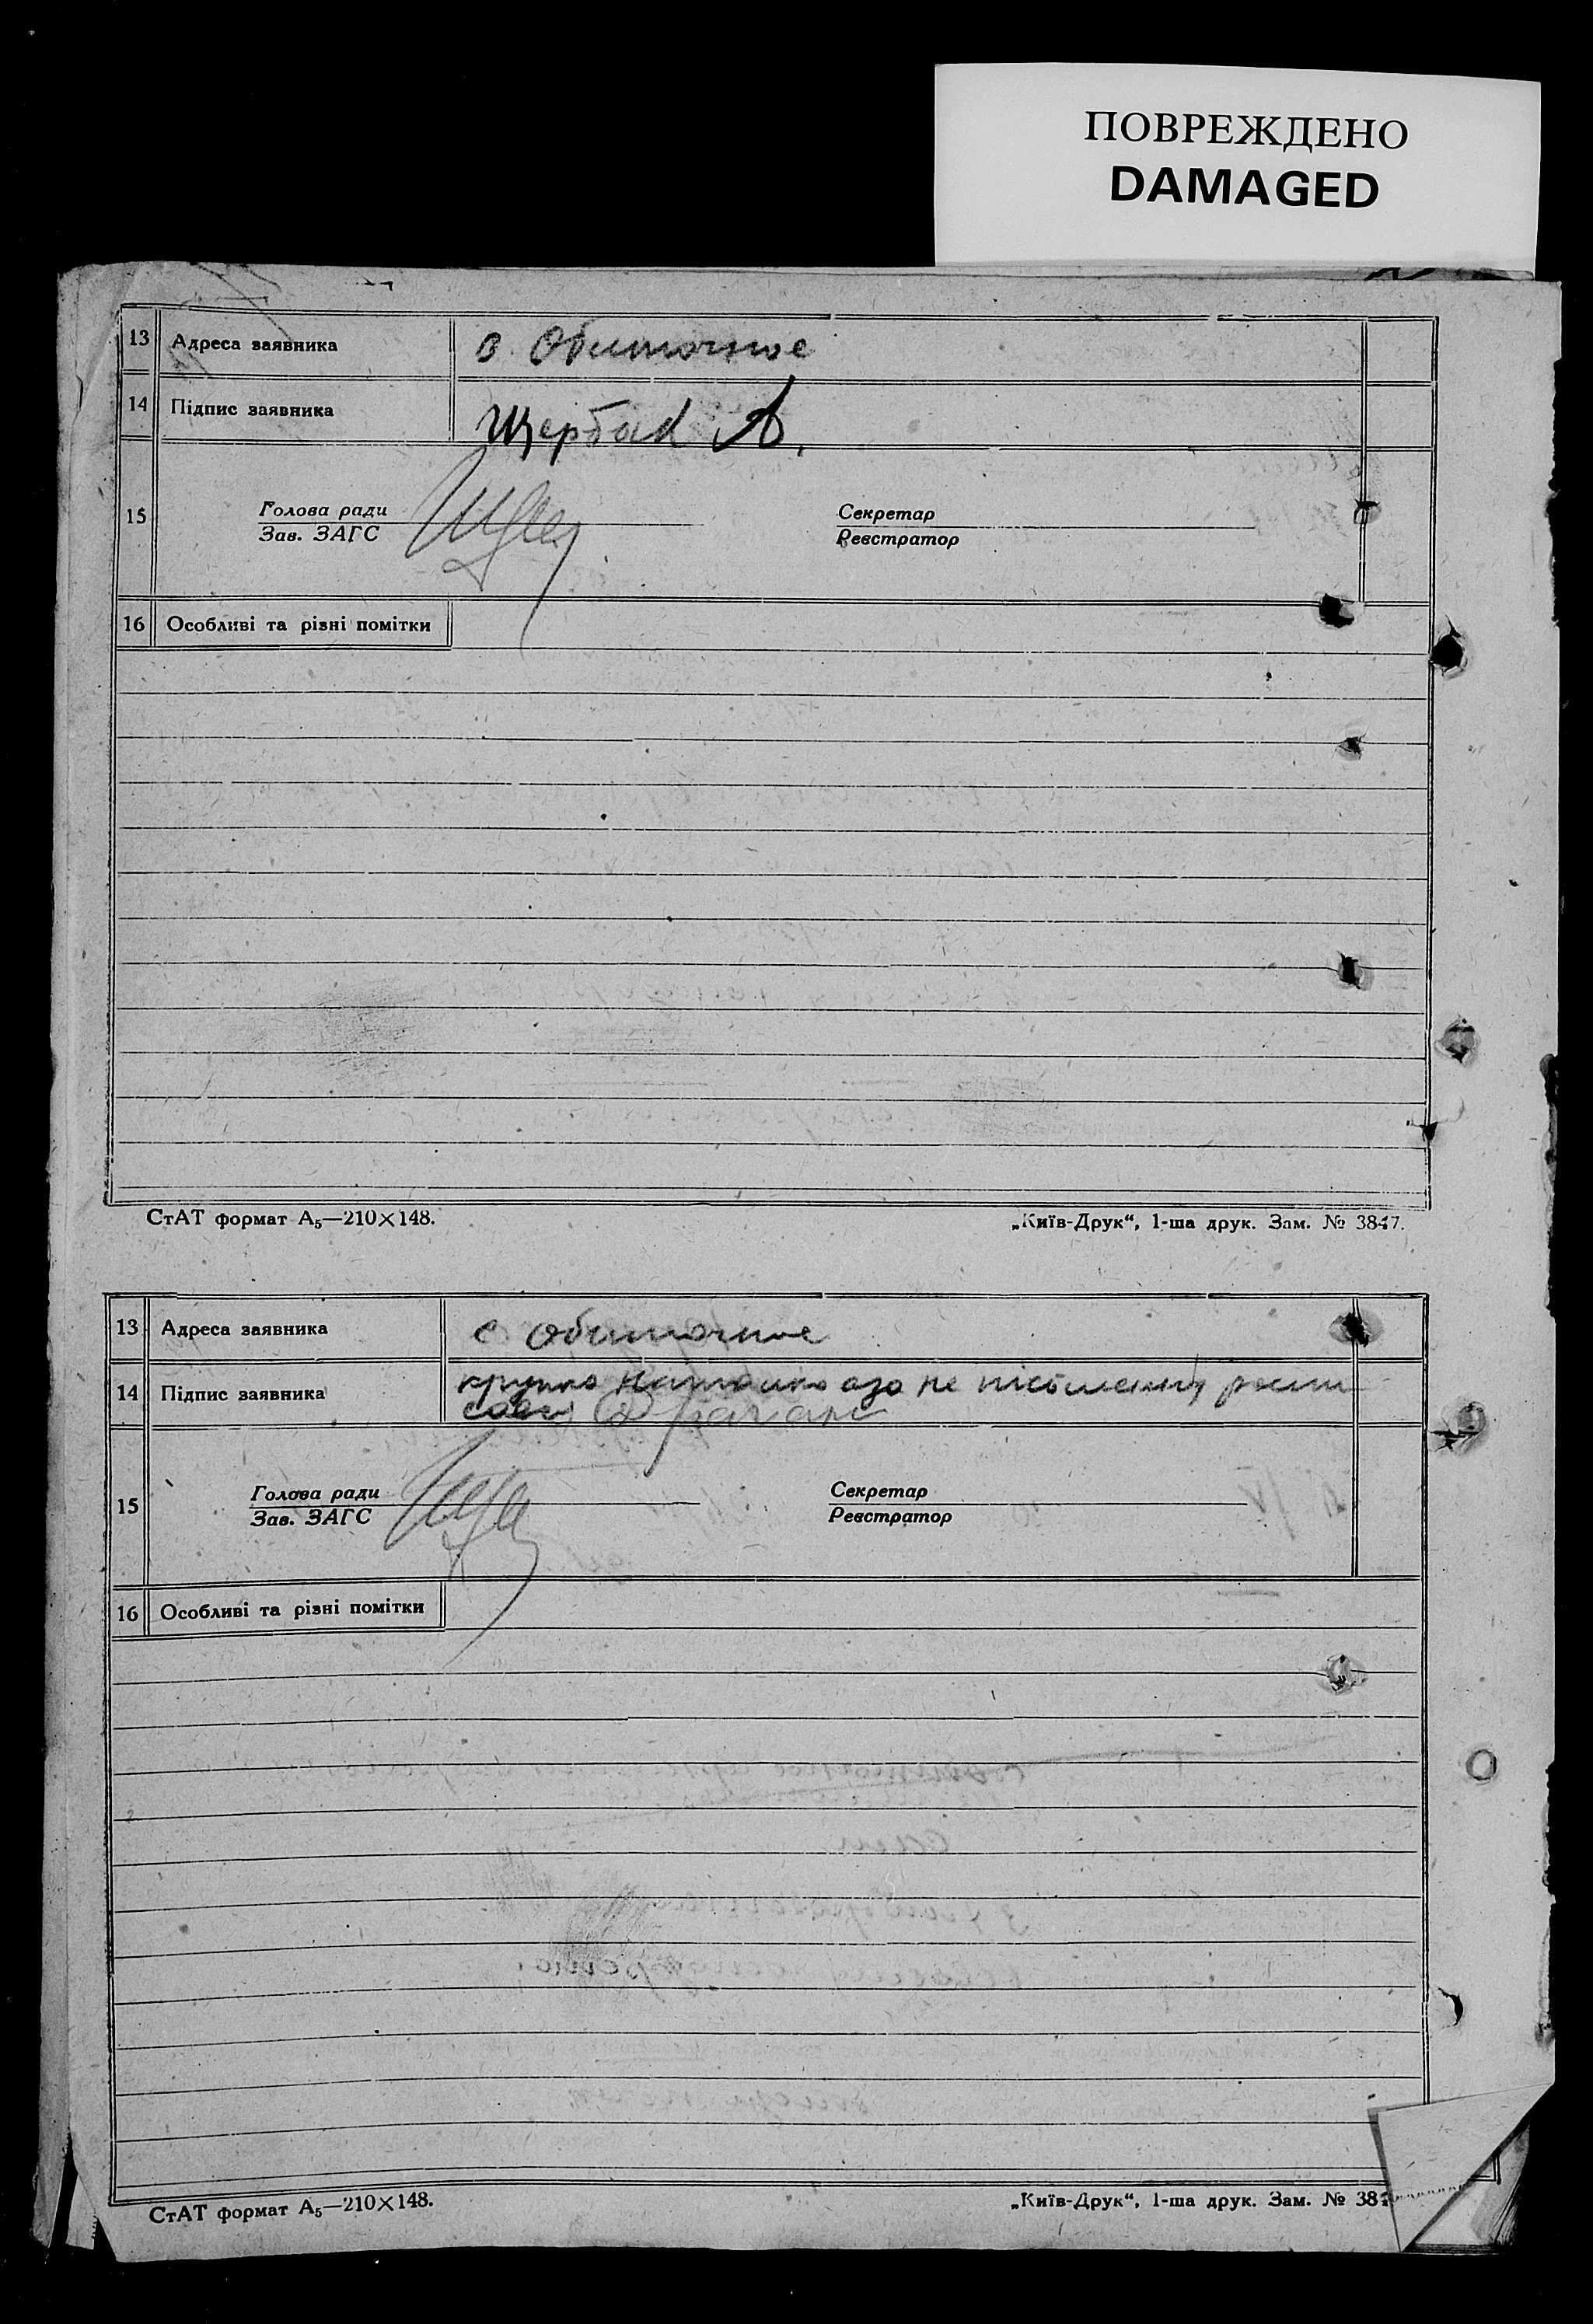 ПОВРЕЖДЕНО
DAMAGED
13 Адреса заявника с Обиточное
14 Підпис заявника Щербак А.
15 Голова ради Секретар
Зав. ЗАГС Реєстратор
16 Особливі та різні помітки
СтАТ формат А5—210×148. „Київ-Друк“, 1-ша друк. Зам. № 3847.
13 Адреса заявника с Обиточное
14 Підпис заявника не
15 Голова ради Секретар
Зав. ЗАГС Реєстратор
16 Особливі та різні помітки
СтАТ формат А5—210×148. „Київ-Друк“, 1-ша друк. Зам. №